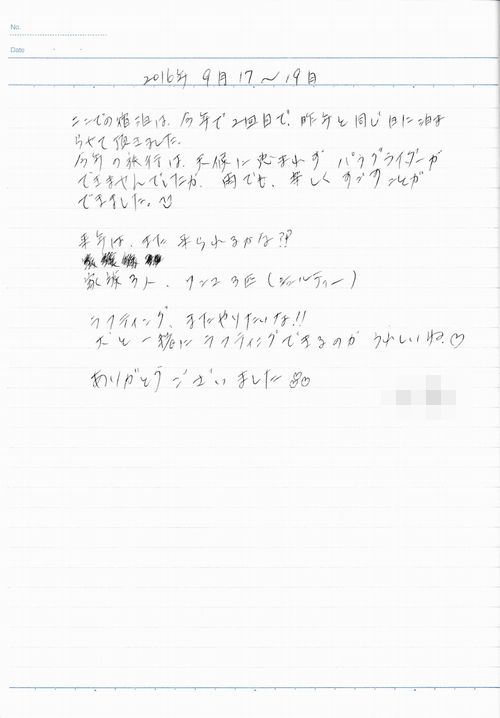 No.
Date
2016年 9月 17〜19日
ここでの宿泊は、今年で2回目で、昨年と同じ日に泊ま
らせて頂きました。
今年の旅行は、天候に恵まれず パラグライダーが
できませんでしたが、雨でも、楽しくすごすことが
できました。
来年は、また 来られるかな?!
家族3人、ワンコ3匹(シェルティー)
ラフティング、またやりたいな!!
犬と一緒にラフティングできるのが うれしいね♡
ありがとうございました